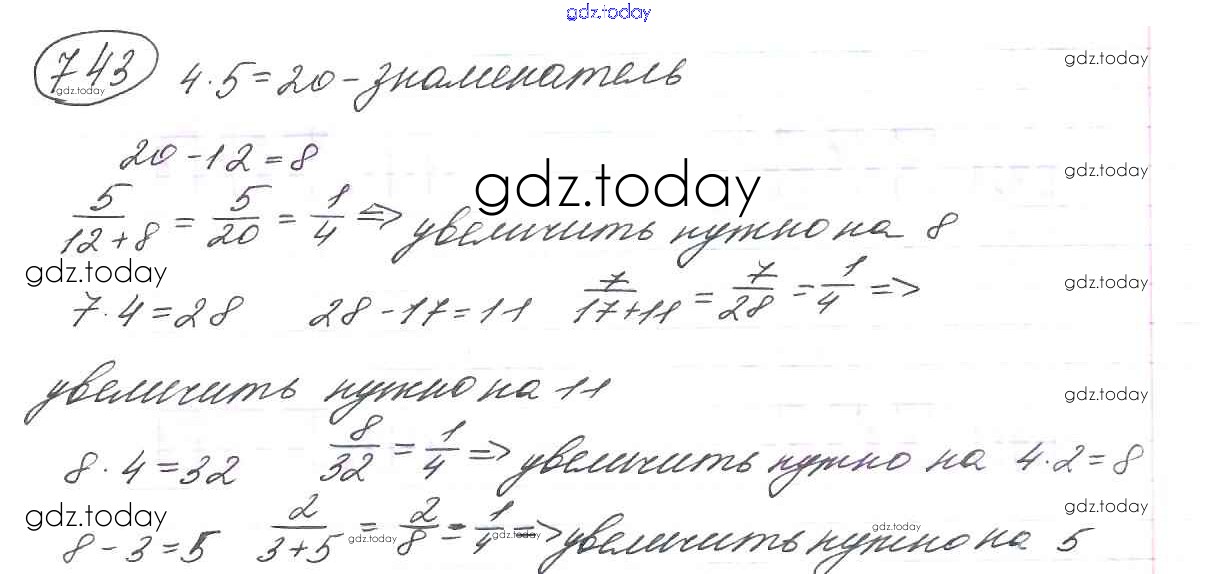 gdz.today
743 4·5=20-знаменатель gdz.today
gdz.today
20-12=8 gdz.today
gdz.today
5/(12+8) = 5/20 = 1/4 => увеличить нужно на 8
gdz.today
7·4=28 28-17=11 7/(17+11) = 7/28 = 1/4 => gdz.today
увеличить нужно на 11 gdz.today
8·4=32 8/32 = 1/4 => увеличить нужно на 4·2=8
gdz.today gdz.today
8-3=5 2/(3+5) = 2/8 = 1/4 => увеличить нужно на 5
gdz.today gdz.today gdz.today